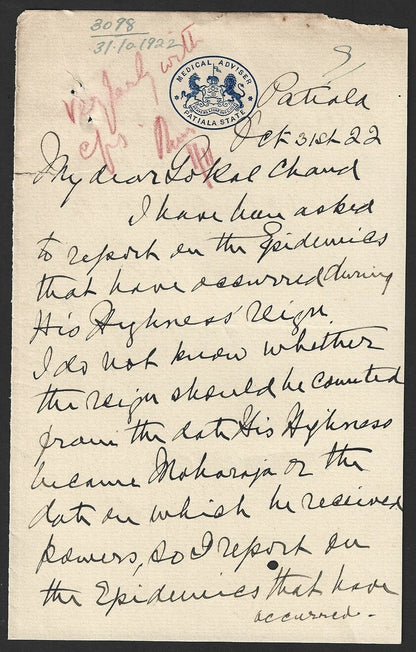 3098
31.10.1922
MEDICAL ADVISER
PATIALA STATE
Patiala
Oct 31st 22
My dear Gokal Chand
I have been asked
to report on the Epidemics
that have occurred during
His Highness' reign.
I do not know whether
the reign should be counted
from the date His Highness
became Maharaja or the
date on which he received
powers, so I report on
the Epidemics that have
occurred -